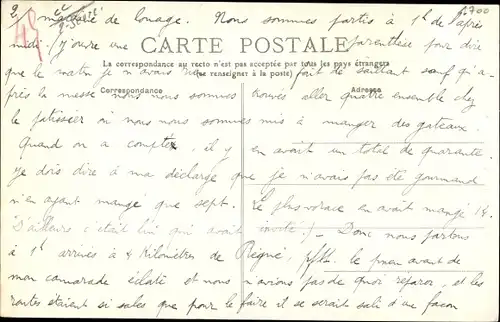 2/
45
2.700
de louage. Nous sommes partis à 1h de l'après
midi. (j'ouvre une parenthèse pour dire
CARTE POSTALE
La correspondance au recto n'est pas acceptée par tous les pays étrangers
(Se renseigner à la poste)
que le matin je n'avais rien fait de saillant sauf qu'a-
Correspondance
Adresse
près la messe nous nous sommes trouvés aller quatre ensemble chez
le patissier où nous nous sommes mis à manger des gateaux.
Quand on a compté, il y en avait un total de quarante.
Je dois dire à ma décharge que je n'avais pas été gourmand
n'en ayant mangé que sept. Le plus vorace en avait mangé 14.
D'ailleurs c'était lui qui avait invité!_ Donc nous partons
à 1h arrivés à 4 Kilomètres de pfff. le pneu avant de
mon camarade éclate et nous n'avions pas de quoi réparer, et les
routes étaient si sales que pour le faire il se serait sali d'une façon